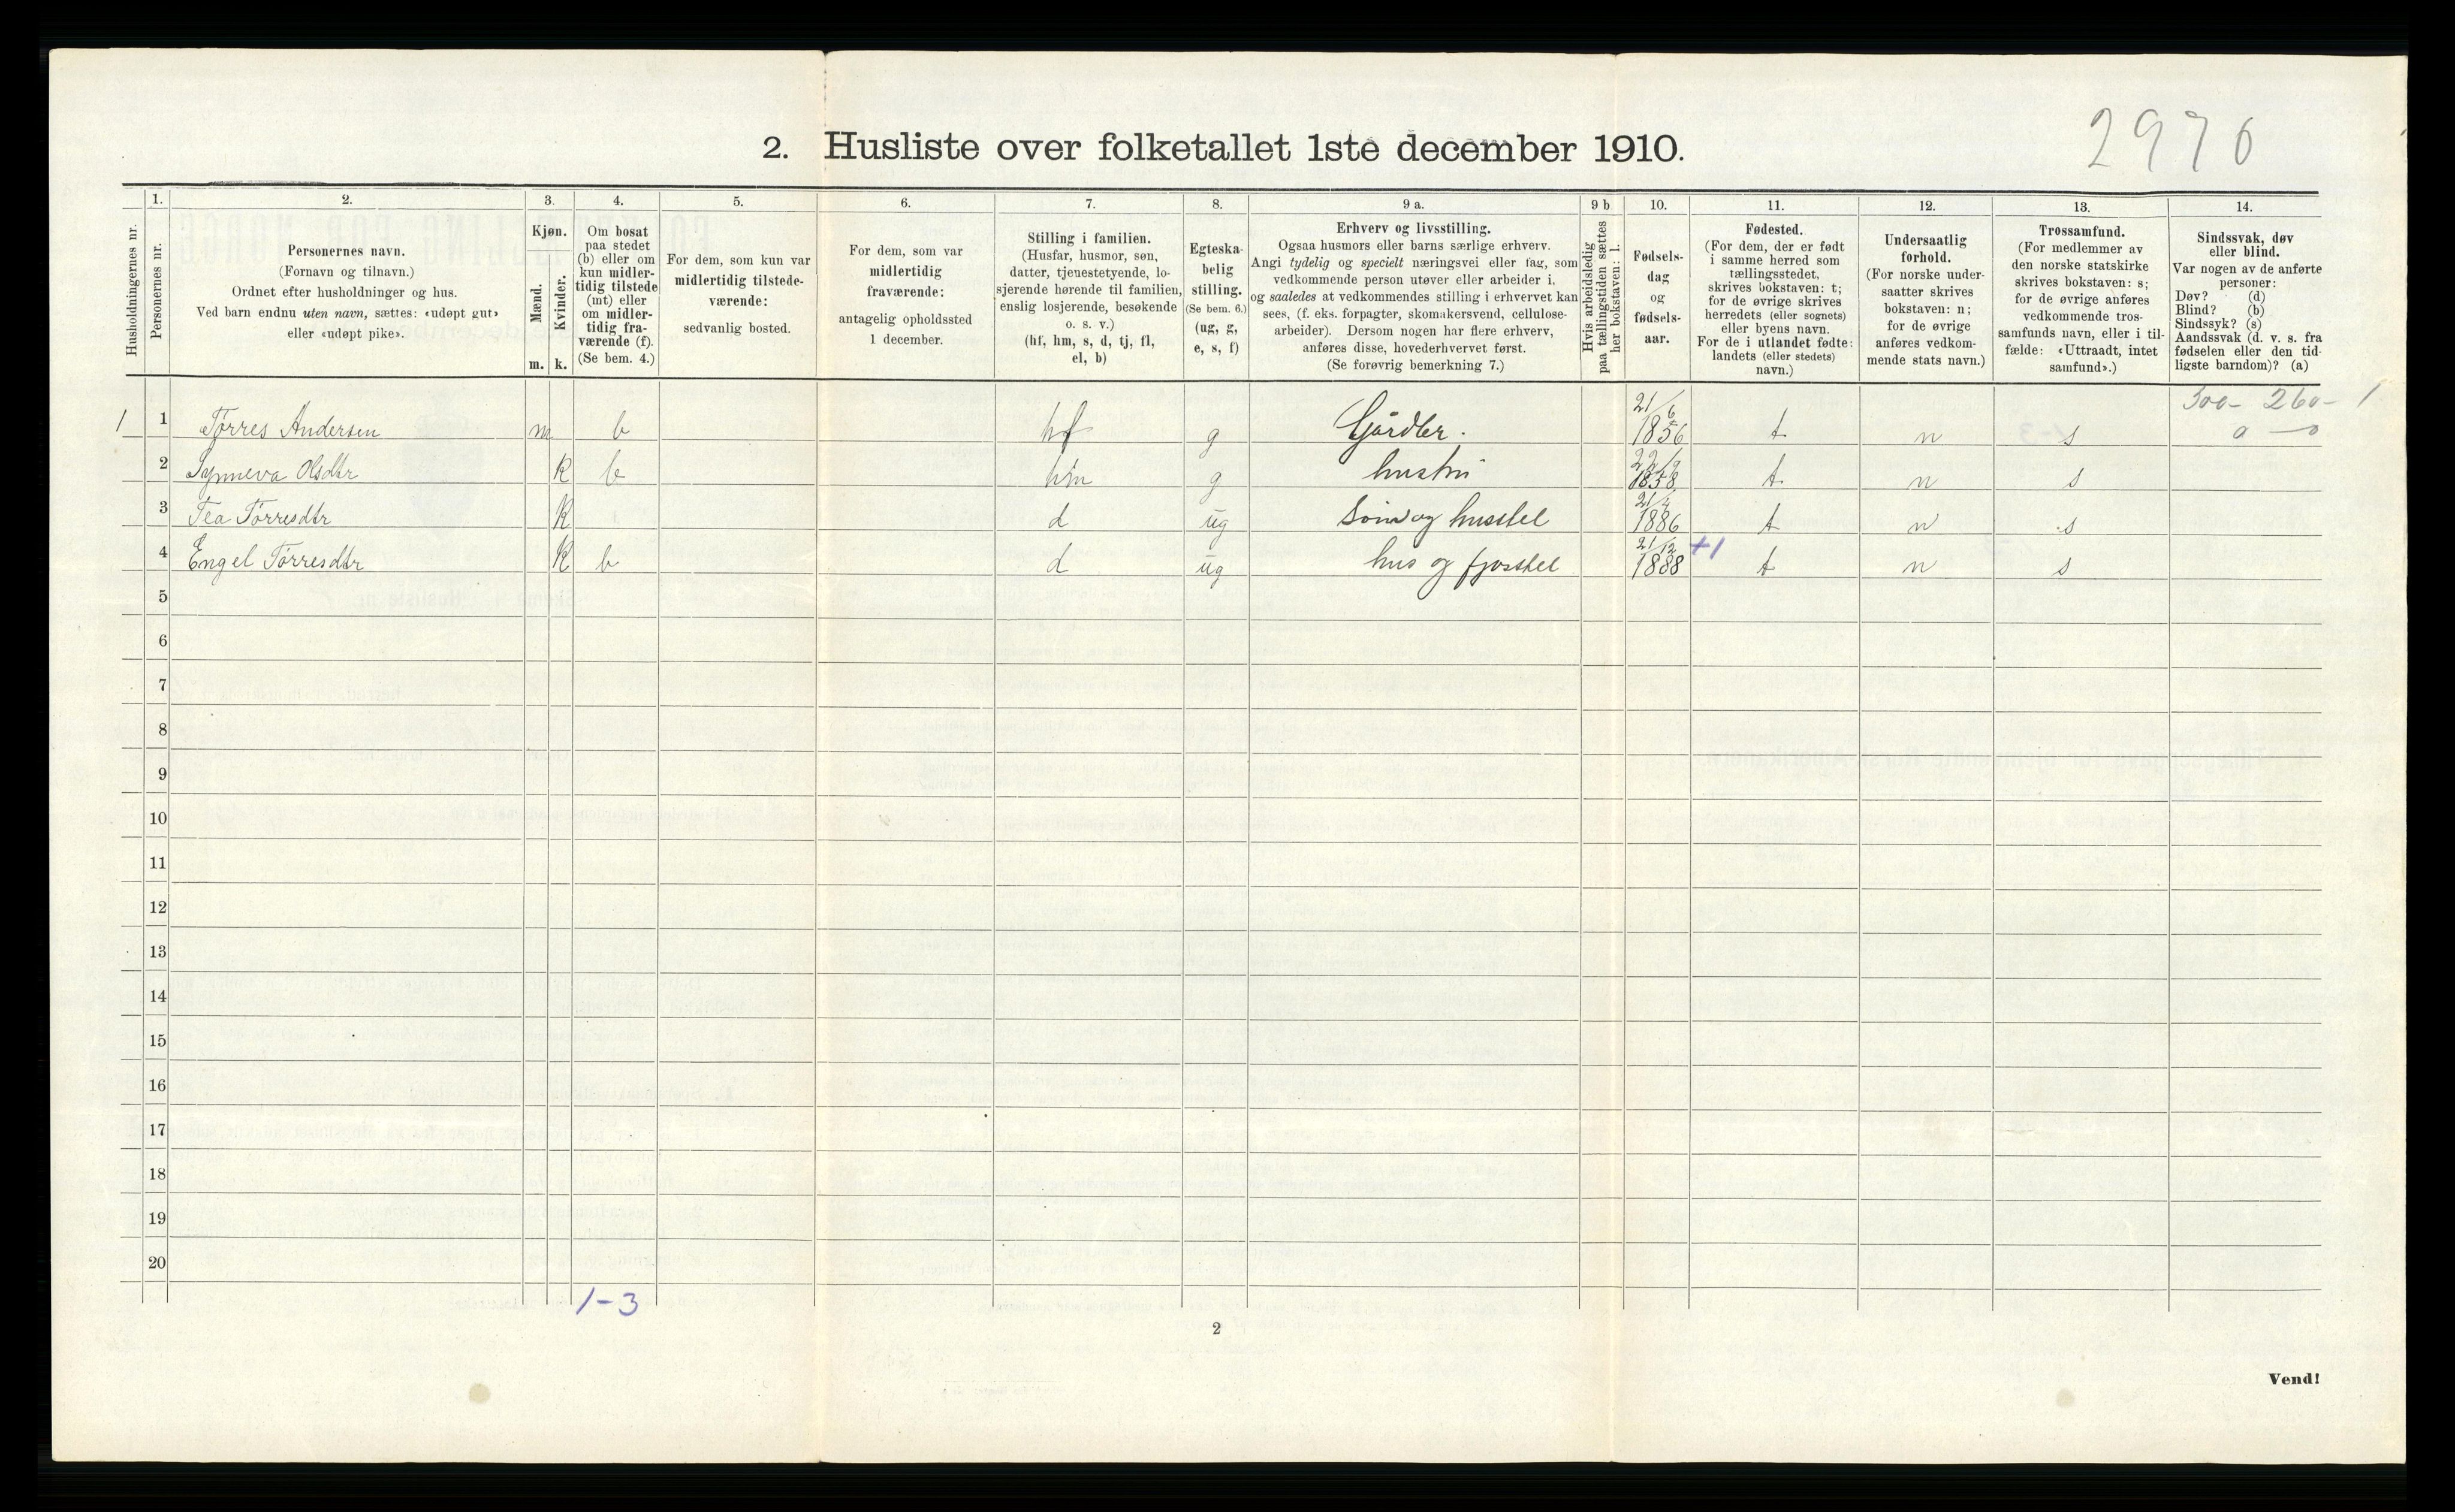 2976
2. Husliste over folketallet 1ste december 1910.
Husholdningernes nr.
1. Personernes nr.
2. Personernes navn.
(Fornavn og tilnavn.)
Ordnet efter husholdninger og hus.
Ved barn endnu uten navn, sættes: «udøpt gut»
eller «udøpt pike».
3. Kjøn.
Mænd. m.
Kvinder. k.
4. Om bosat
paa stedet
(b) eller om
kun midler-
tidig tilstede
(mt) eller
om midler-
tidig fra-
værende (f).
(Se bem. 4.)
5. For dem, som kun var
midlertidig tilstede-
værende:
sedvanlig bosted.
6. For dem, som var
midlertidig
fraværende:
antagelig opholdssted
1 december.
7. Stilling i familien.
(Husfar, husmor, søn,
datter, tjenestetyende, lo-
sjerende hørende til familien,
enslig losjerende, besøkende
o. s. v.)
(hf, hm, s, d, tj, fl,
el, b)
8. Egteska-
belig
stilling.
(Se bem. 6.)
(ug, g,
e, s, f)
9 a. Erhverv og livsstilling.
Ogsaa husmors eller barns særlige erhverv.
Angi tydelig og specielt næringsvei eller fag, som
vedkommende person utøver eller arbeider i,
og saaledes at vedkommendes stilling i erhvervet kan
sees, (f. eks. forpagter, skomakersvend, cellulose-
arbeider). Dersom nogen har flere erhverv,
anføres disse, hovederhvervet først.
(Se forøvrig bemerkning 7.)
9 b Hvis arbeidsledig
paa tællingstiden sættes
her bokstaven: l.
10. Fødsels-
dag
og
fødsels-
aar.
11. Fødested.
(For dem, der er født
i samme herred som
tællingsstedet,
skrives bokstaven: t;
for de øvrige skrives
herredets (eller sognets)
eller byens navn.
For de i utlandet fødte:
landets (eller stedets)
navn.)
12. Undersaatlig
forhold.
(For norske under-
saatter skrives
bokstaven: n;
for de øvrige
anføres vedkom-
mende stats navn.)
13. Trossamfund.
(For medlemmer av
den norske statskirke
skrives bokstaven: s;
for de øvrige anføres
vedkommende tros-
samfunds navn, eller i til-
fælde: «Uttraadt, intet
samfund».)
14. Sindssvak, døv
eller blind.
Var nogen av de anførte
personer:
Døv? (d)
Blind? (b)
Sindssyk? (s)
Aandssvak (d. v. s. fra
fødselen eller den tid-
ligste barndom)? (a)
300- 260- 1
1 1 Tørres Andersen m b hf g Gårdbr. 21/6 1856 t n s 0 - 0
2 Synneva Olsdtr K b hm g hustru 1858 t n s
3 Tea Tørresdtr K d ug Søm og husstel 1886 t n s
4 Engel Tørresdtr K b d ug hus og fjosstel 21/12 1888 +1 t n s
5
6
7
8
9
10
11
12
13
14
15
16
17
18
19
20
1-3
2
Vend!